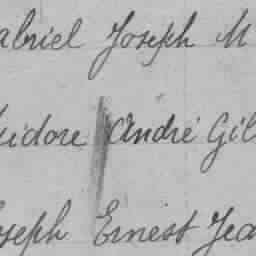 abriel Joseph M
sidore André Gil
oseph Ernest Jea